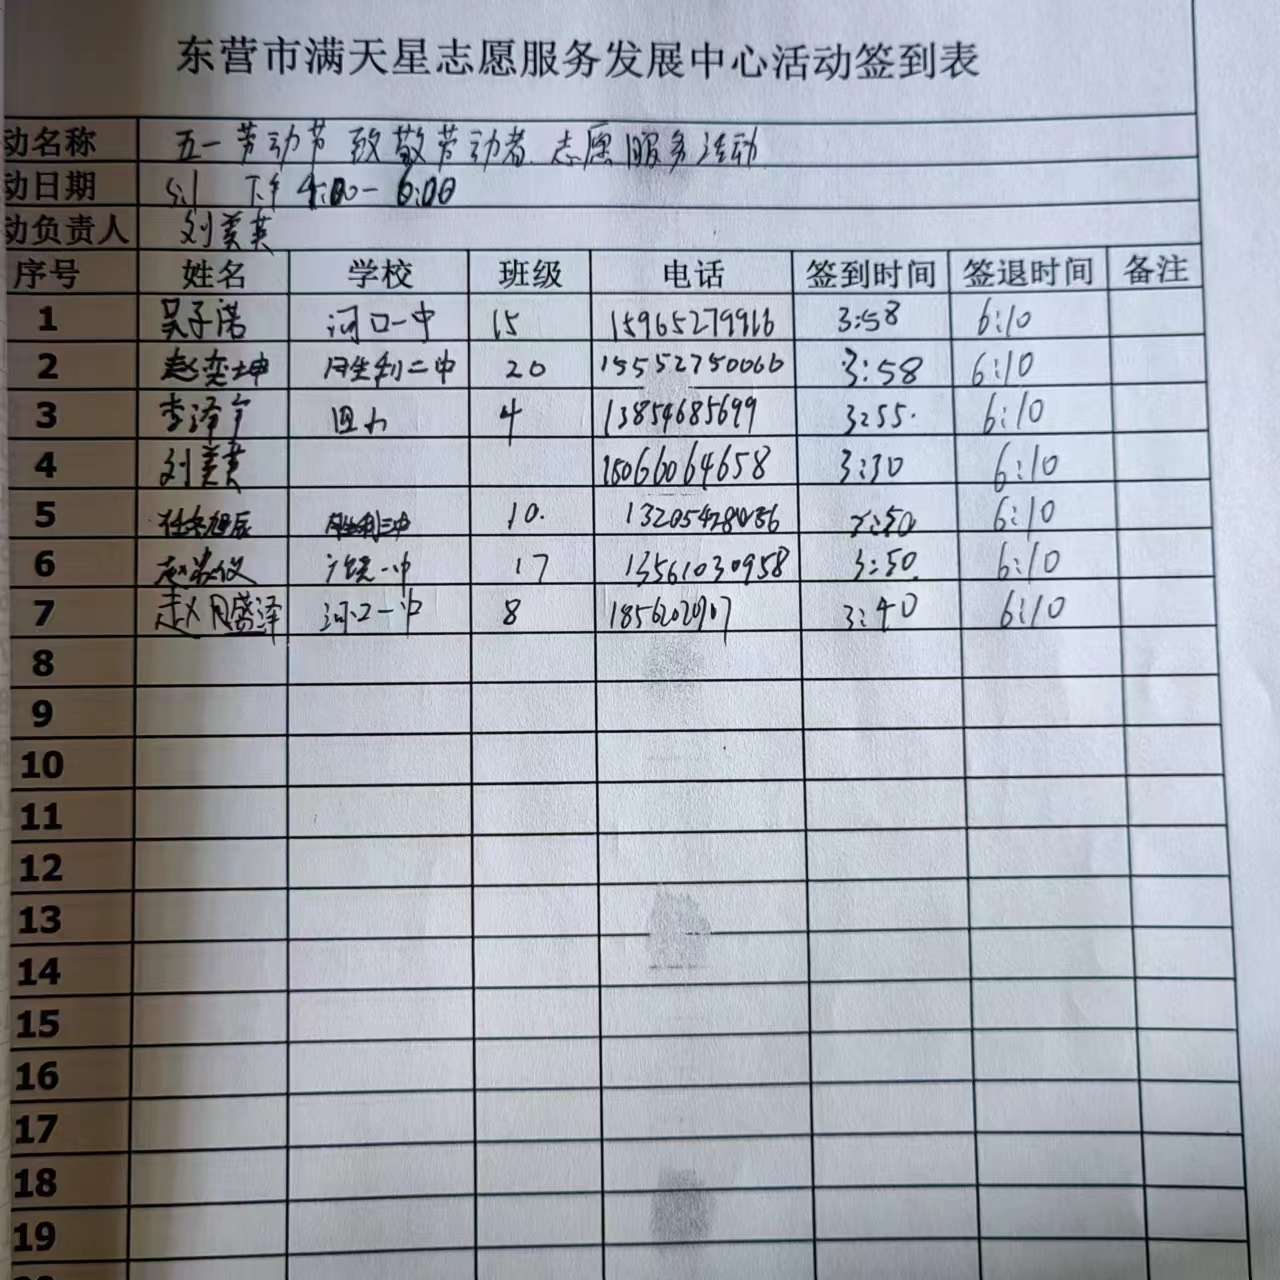 东营市满天星志愿服务发展中心活动签到表
动名称 五一劳动节 致敬劳动者 志愿服务活动
动日期 5.1 下午 4:00-6:00
动负责人 刘美英
序号 姓名 学校 班级 电话 签到时间 签退时间 备注
1 吴子涵 河口一中 15 15965279916 3:58 6:10
2 赵奕坤 胜利二中 20 15552750060 3:58 6:10
3 李泽宁 4 13854685699 3:55 6:10
4 刘美英 18066064658 3:30 6:10
5 10. 6:10
6 一中 17 13561030958 3:50 6:10
7 赵 盛泽 河口一中 8 3:40 6:10
8
9
10
11
12
13
14
15
16
17
18
19